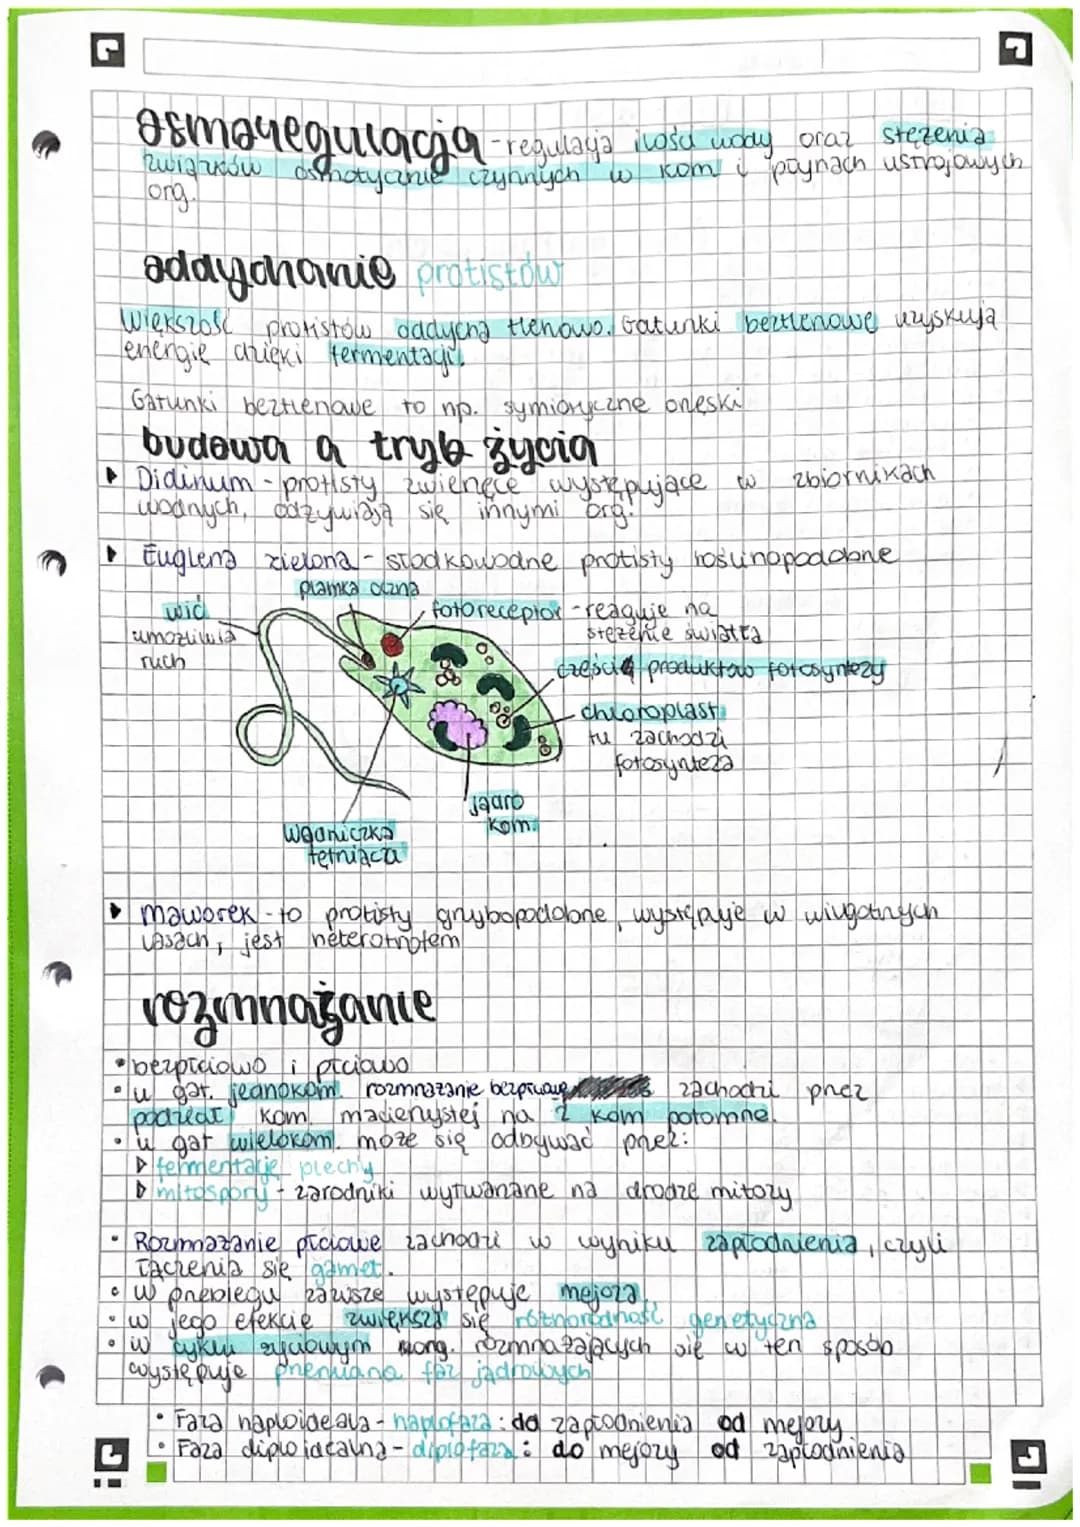 osmoregulacja - regulacja ilości wody oraz stężenia
związków osmotycznie czynnych w kom i płynach ustrojowych
org.
oddychanie protistów
Większość protistów oddycha tlenowo. Gatunki beztlenowe uzyskują
energię dzięki fermentacji.
Gatunki beztlenowe to np. symioryczne orzęski
budowa a tryb życia
Didinum - protisty zwierzęce występujące w zbiornikach
wodnych, odżywiają się innymi org.
Euglena zielona - słodkowodne protisty roślinopodobne
plamka oczna
wić
umożliwia
ruch
fotoreceptor - reaguje na
stężenie światła
części produktów fotosyntezy
chloroplast
tu zachodzi
fotosynteza
jądro
kom.
wodniczka
tętniąca
maworek - to protisty grzybopodobne, występuje w wilgotnych
lasach, jest heterotrofem
rozmnażanie
• bezpłciowo i płciowo
• u gat. jednokom. rozmnażanie bezpłciowe zachodzi przez
podział kom. macierzystej na 2 kom potomne.
• u gat wielokom. może się odbywać przez:
fermentację plechy
mitospory - zarodniki wytwarzane na drodze mitozy
• Rozmnażanie płciowe zachodzi w wyniku zapłodnienia, czyli
łączenia się gamet.
• w przebiegu zawsze występuje mejoza.
• w jego efekcie zwiększa się różnorodność genetyczna
• w cyklu życiowym org. rozmnażających się w ten sposób
występuje przemiana faz jądrowych
• Faza haploidealna - haplofaza: do zapłodnienia od mejozy
• Faza diploidalna - diplofaza: do mejozy od zapłodnienia